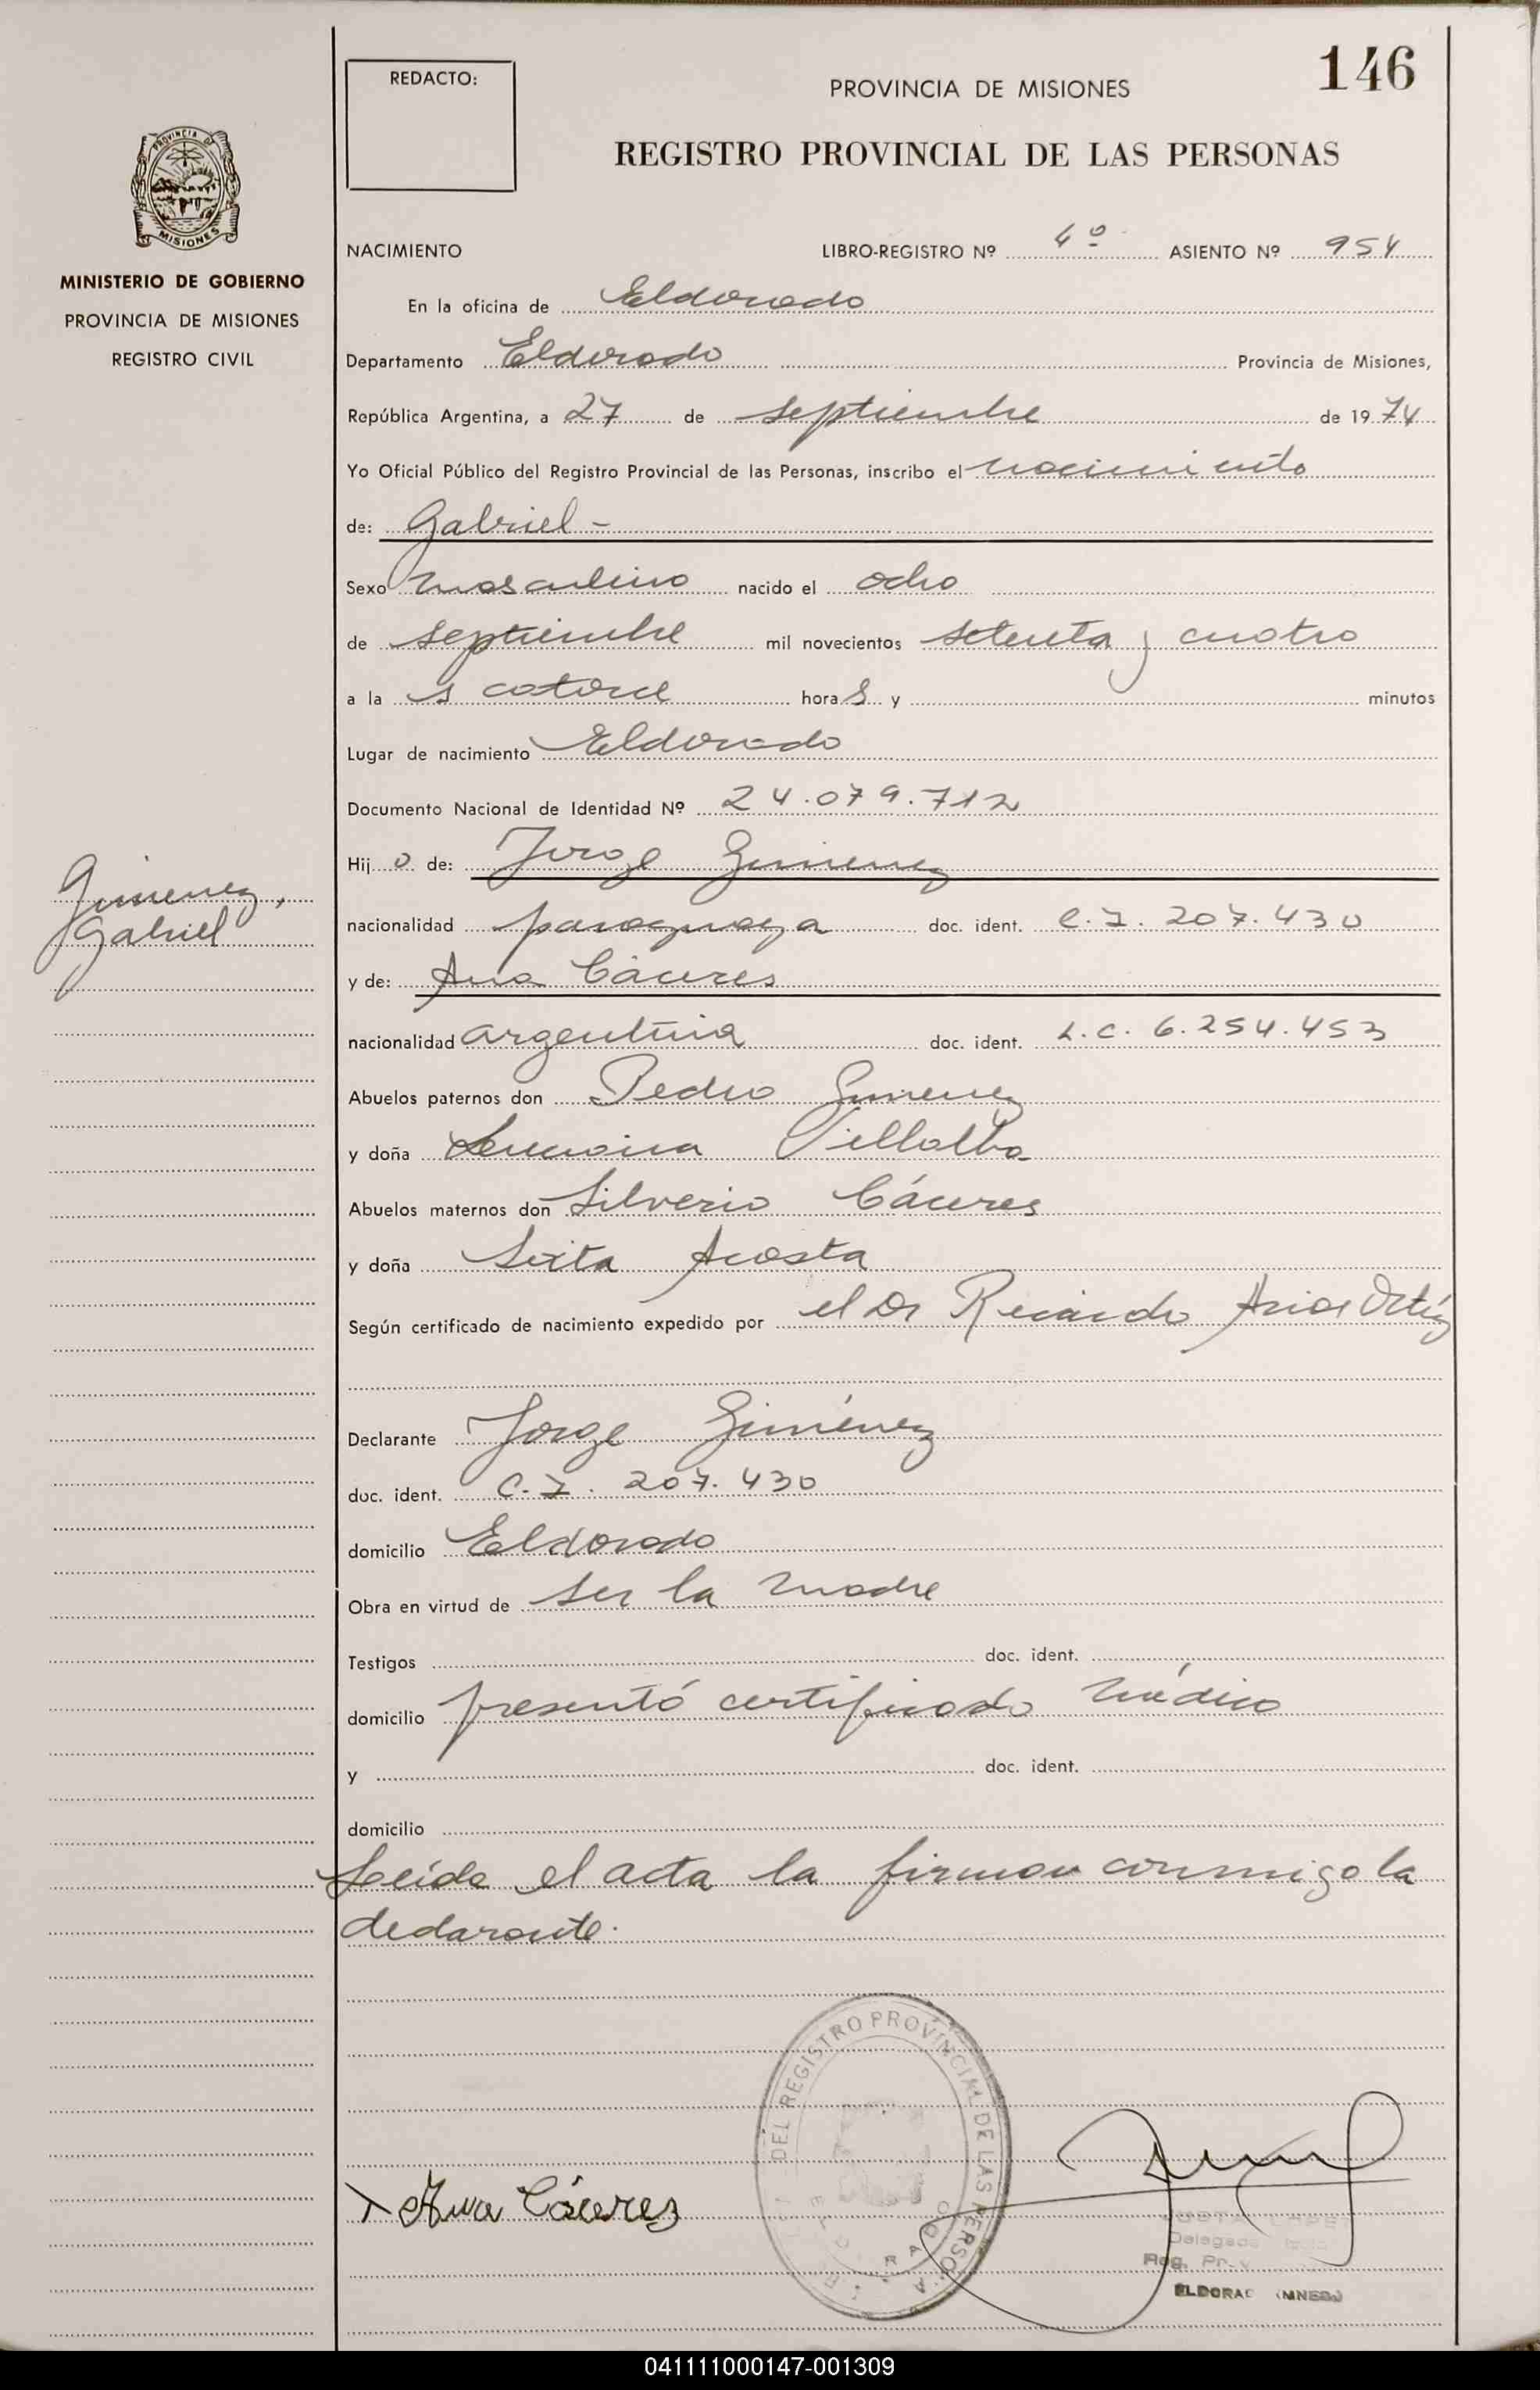 146
REDACTO:
PROVINCIA DE MISIONES
REGISTRO PROVINCIAL DE LAS PERSONAS
PROVINCIA DE
MISIONES
MINISTERIO DE GOBIERNO
PROVINCIA DE MISIONES
REGISTRO CIVIL
NACIMIENTO LIBRO-REGISTRO Nº 4º ASIENTO Nº 954
En la oficina de Eldorado
Departamento Eldorado Provincia de Misiones,
República Argentina, a 27 de septiembre de 1974
Yo Oficial Público del Registro Provincial de las Personas, inscribo el nacimiento
de: Gabriel -
Sexo masculino nacido el ocho
de septiembre mil novecientos setenta y cuatro
a la s catorce horas y minutos
Lugar de nacimiento Eldorado
Documento Nacional de Identidad Nº 24.079.712
Hijo de: Jorge Gimenez
Gimenez,
Gabriel
nacionalidad paraguaya doc. ident. C.I. 207.430
y de: Ana Cáceres
nacionalidad argentina doc. ident. L.C. 6.254.453
Abuelos paternos don Pedro Gimenez
y doña Villalba
Abuelos maternos don Silverio Cáceres
y doña Sixta Acosta
Según certificado de nacimiento expedido por el Dr Ricardo Arias Ortíz
Declarante Jorge Giménez
doc. ident. C.I. 207.430
domicilio Eldorado
Obra en virtud de ser la madre
Testigos doc. ident.
domicilio presentó certificado médico
y doc. ident.
domicilio
Leída el acta la firman conmigo la
declarante.
DEL REGISTRO PROVINCIAL DE LAS PERSO
Ana Cácerez
Delegad
Reg. Pr
ELDORAD (MNES)
041111000147-001309